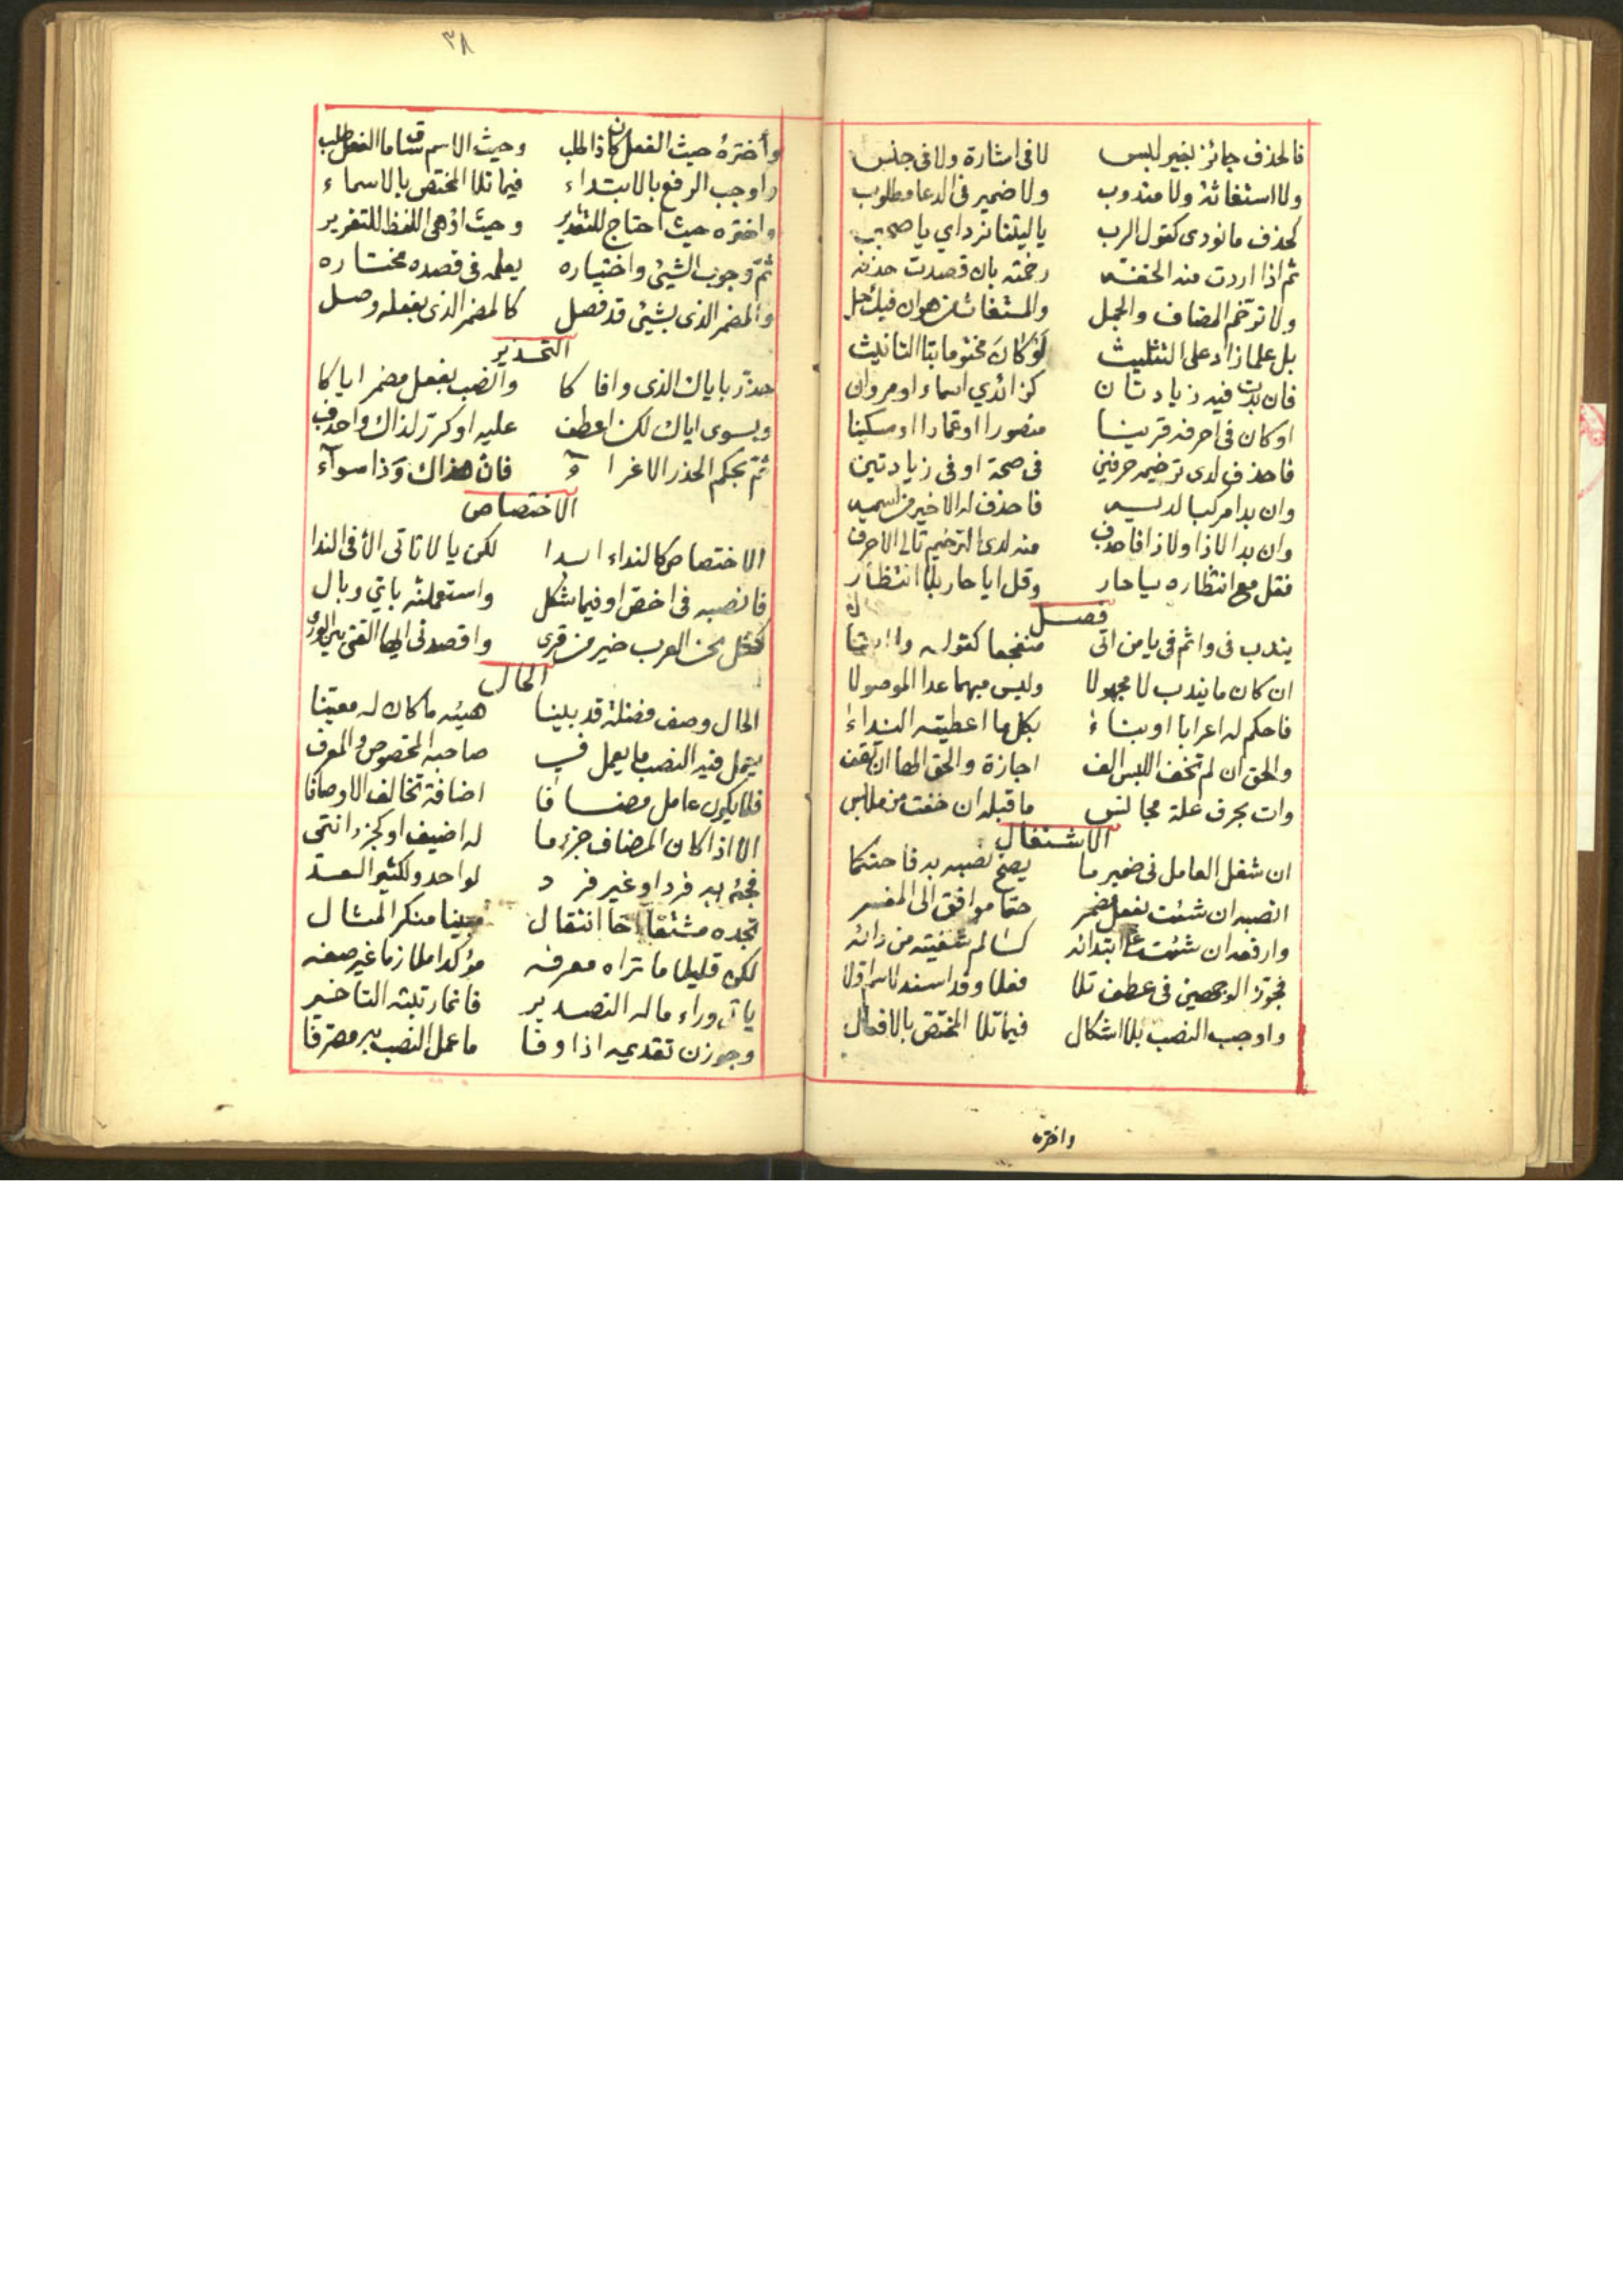 فالحذف جائز بغير لبس لا في اشارة ولا في جنس
ولا استغاثة ولا مندوب ولا ضمير في الدعا مطلوب
كحذف ما نودي كقول الرب يا ليتنا نرد اي يا صحب
ثم اذا اردت منه الخفه رخمته بان قصدت حذفه
ولا ترخم المضاف والجمل والمستغاث
بل علما زاد على التثليث لو كان مختوما بتا التانيث
فان بدت فيه زيادتان كزائدي اسماء او مروان
او كان في احرفه قرينا منصورا او عمارا او مسكينا
فاحذف لدى ترخيمه حرفين في صحة او في زيادتين
وان بدا مركبا لديه فاحذف له الاخير من اسميه
وان بدا لا ذا ولا ذا فاحذف منه لدى الترخيم تالي الاحرف
فقل مع انتظاره يا حار وقل ايا حار بلا انتظار
فصل
يندب في وا ثم في يا من اتى متفجعا كقوله وا
ان كان ما يندب لا مجهولا وليس مبهما عدا الموصولا
فاحكم له اعرابا او بناء بكل ما اعطيته النداء
والحق ان لم تخف اللبس الف اجازة والحق الها ان تقف
وات بحرف علة مجانس ما قبله ان خفت من ملابس
الاشتغال
ان شغل العامل في ضمير ما يصح نصبه به فاحتكما
انصبه ان شئت بفعل مضمر حتما موافق الى المفسر
وارفعه ان شئت على ابتدائه كسالم شفيته من دائه
فجوز الوجهين في عطف تلا فعلا وقد اسند لاسم اولا
واوجب النصب بلا اشكال فيما تلا المختص بالافعال
واختره
٣٨
واختره حيث الفعل كان ذا طلب وحيث الاسم
واوجب الرفع بالابتداء فيما تلا المختص بالاسماء
واختره حيث احتاج للتقدير وحيث اذهى اللفظ للتغرير
ثم وجوب الشيئ واختياره يعلمه في قصده مختاره
والمضمر الذي بشيئ قد فصل كالمضمر الذي بفعله وصل
التحذير
حذر باياك الذي وافاكا وانصب بفعل مضمر اياكا
وبسوى اياك لكن اعطف عليه او كرر لذاك واحذف
ثم بحكم الحذر الاغراء فان هذاك وذا سوآء
الاختصاص
الاختصاص كالنداء ابدا لكن يا لا تاتي الا في الندا
فانصبه في اخص او فيما شكل واستعملنه باي وبال
كمثل نحن العرب خير من قرى واقصدني ايها الفتى بين الورى
الحال
الحال وصف فضلة قد بينا هيئه ما كان له معينا
يعمل فيه النصب ما يعمل في صاحبه المخصوص والمعرف
فلا يكون عامل مضافا اضافة تخالف الاوصافا
الا اذا كان المضاف جزء ما له اضيف او كجزء انتمى
فجئ به فردا وغير فرد لواحد ولكثير العد
تجده مشتقا اخا انتقال مبينا منكر المثال
لكن قليلا ما تراه معرفه مؤكدا ملازما غير صفه
ياتي وراء ما له التصدير فانما رتبته التاخير
وجوزن تقديمه اذا وفا ما عمل النصب به مصرفا